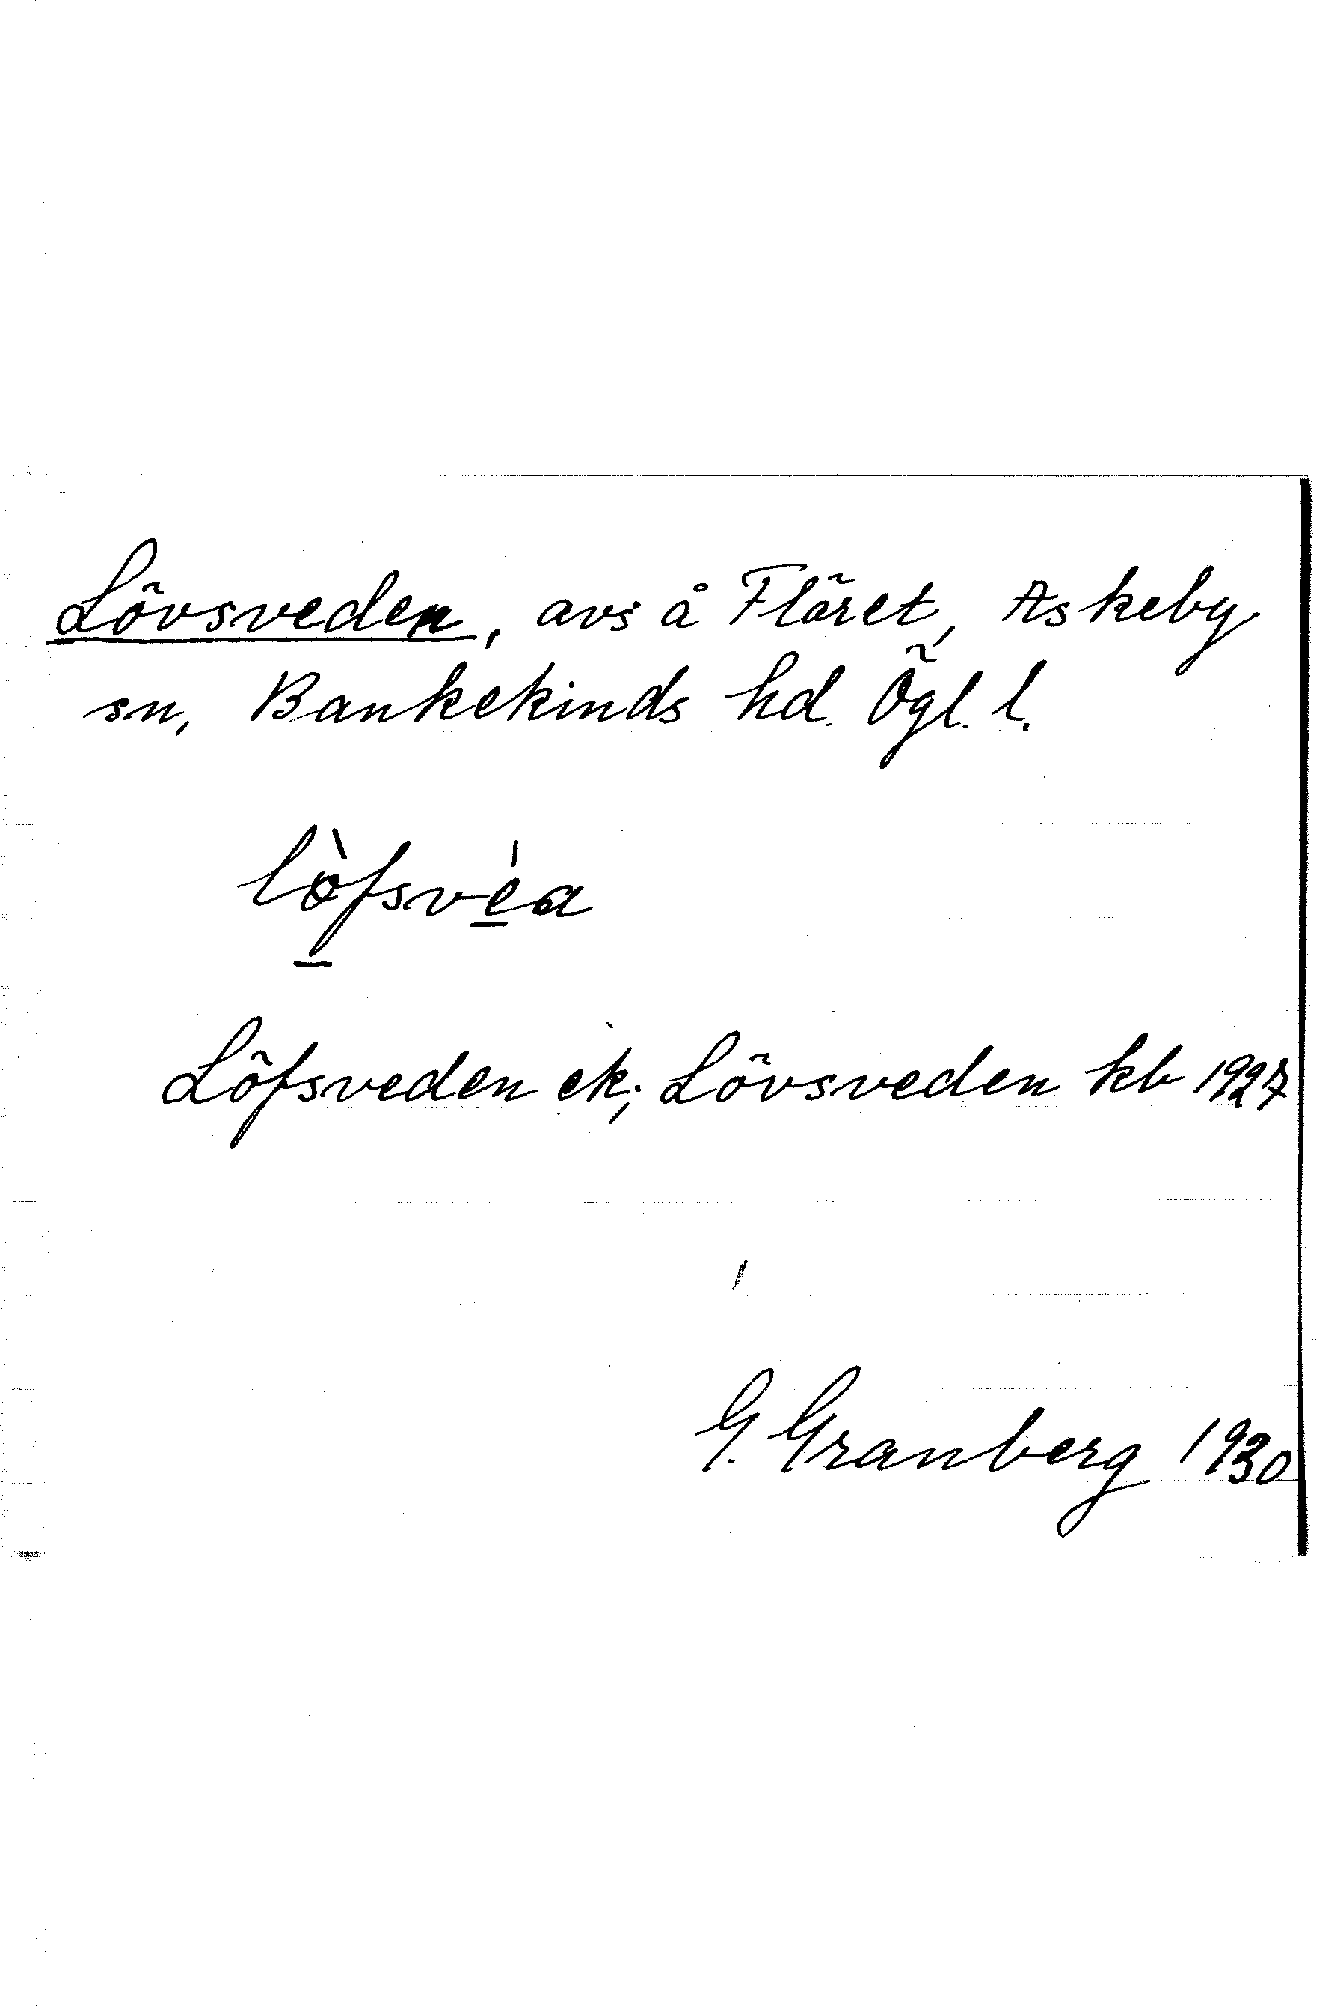 Lövsveden, avs å Fläret, Askeby
sn, Bankekinds hd. Ögl. l.
lòfsvéa
Löfsveden ek; Lövsveden kb 1927
G. Granberg 1930